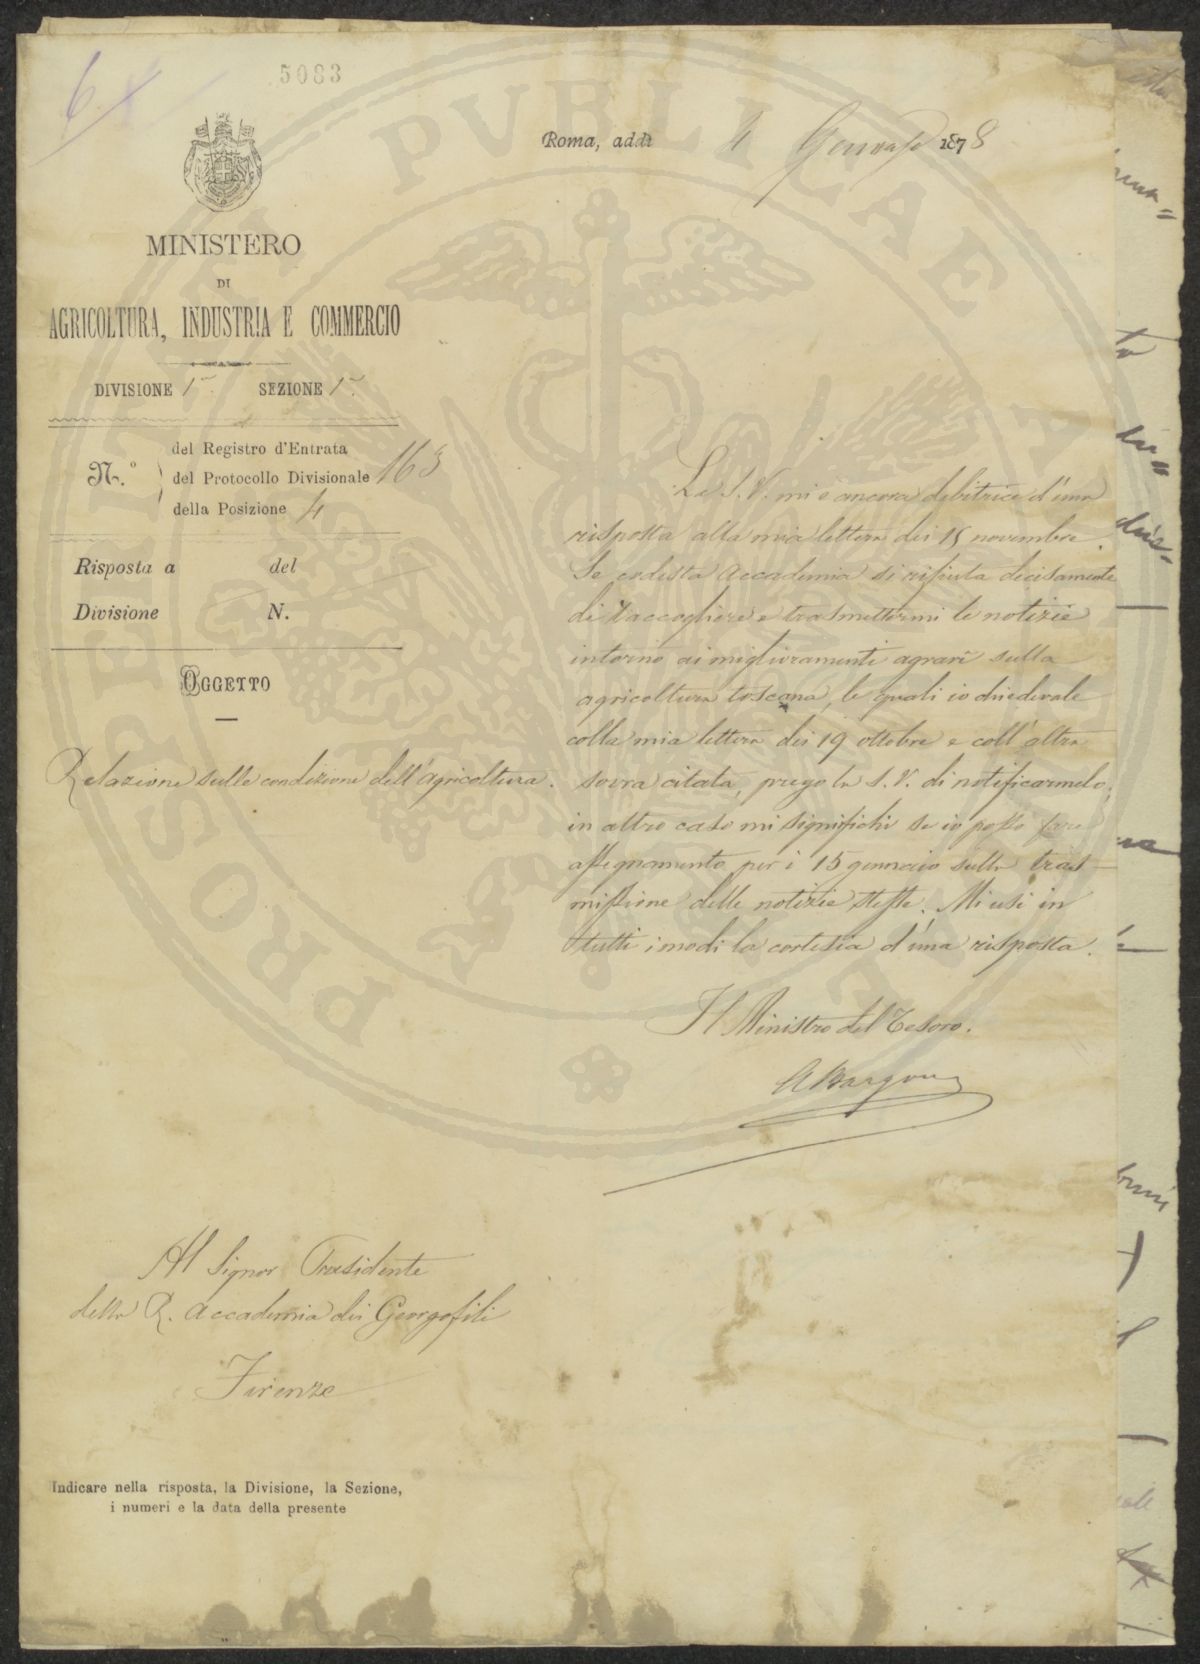 5083
Roma, addì 4 Gennajo 1878
MINISTERO
DI
AGRICOLTURA, INDUSTRIA E COMMERCIO
DIVISIONE 1ª SEZIONE 1ª
N.º
del Registro d'Entrata
del Protocollo Divisionale 163
della Posizione 4
Risposta a del
Divisione N.
OGGETTO
Relazione sulle condizione dell'agricoltura.
La S. V. mi è ancora debitrice d'una
risposta alla mia lettera dei 15 novembre.
Se codesta Accademia si rifiuta decisamente
di raccogliere e trasmettermi le notizie
intorno ai miglioramenti agrarî sulla
agricoltura toscana, le quali io chiedevale
colla mia lettera dei 19 ottobre e coll'altra
sovra citata, prego la S. V. di notificarmelo;
in altro caso mi significhi se io posso fare
assegnamento per i 15 gennaio sulla tras-
missione delle notizie stesse. Mi usi in
tutti i modi la cortesia d'una risposta.
Il Ministro del Tesoro.
A Bargoni
Al Signor Presidente
della R. Accademia dei Georgofili
Firenze
Indicare nella risposta, la Divisione, la Sezione,
i numeri e la data della presente
PROSPERITATI PVBLICAE AVGENDAE